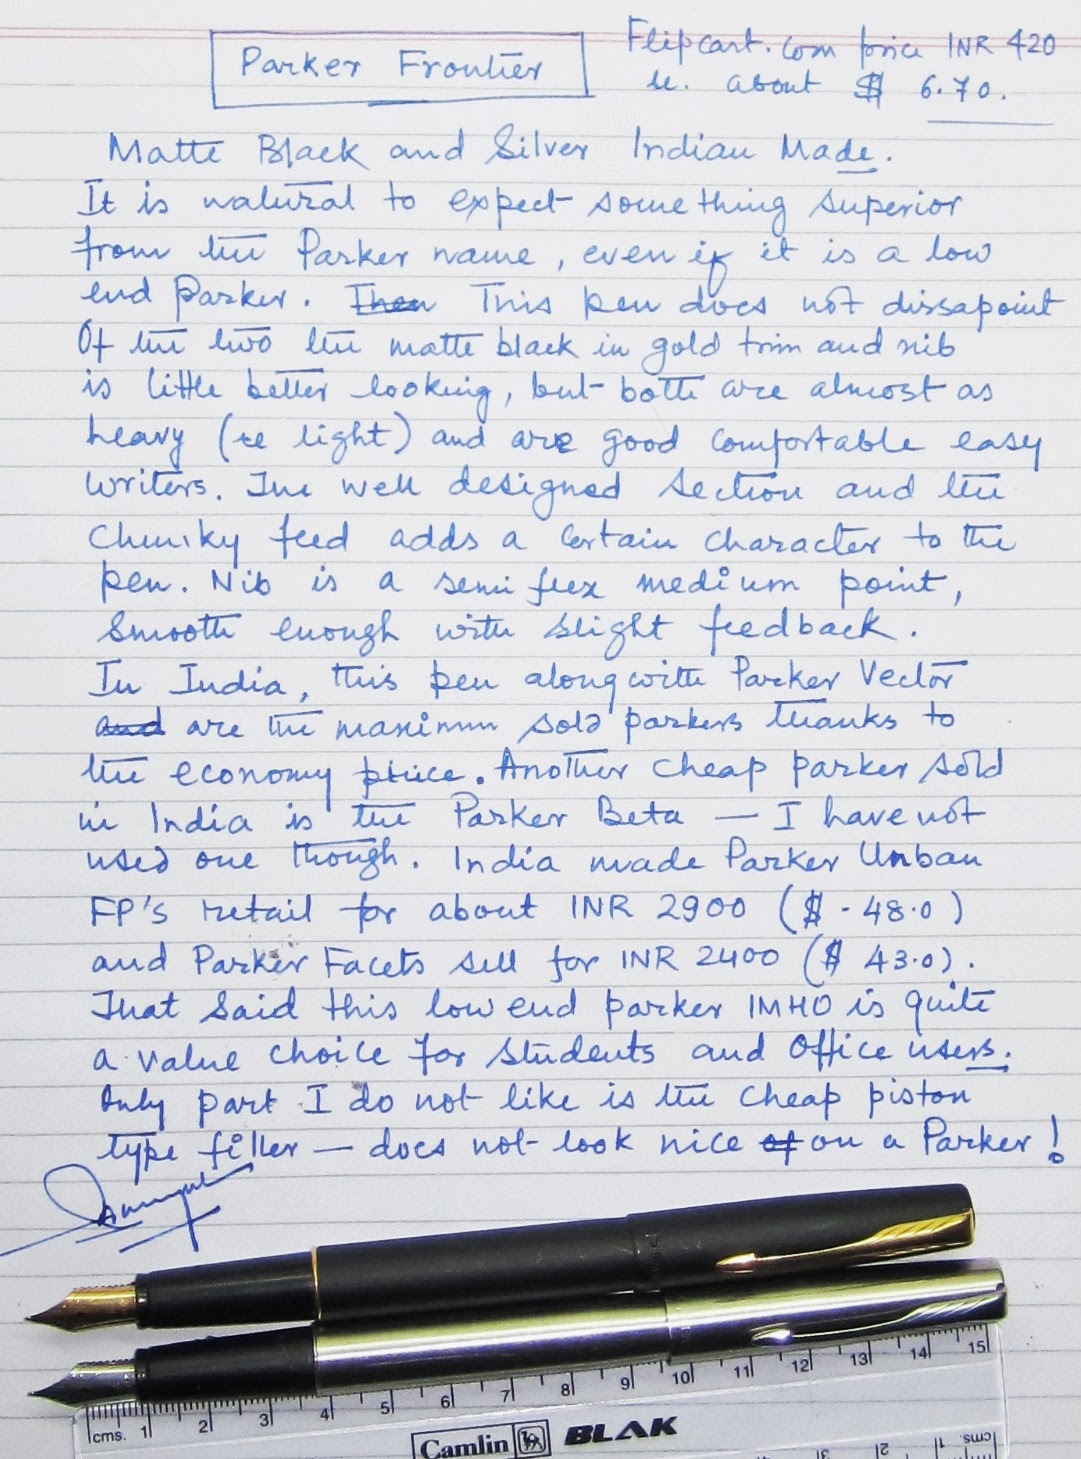 Parker Frontier
Flipcart.com price INR 420
ie. about $ 6.70.
Matte Black and Silver Indian Made.
It is natural to expect something superior
from the Parker name, even if it is a low
end Parker. Then This pen does not dissapoint
Of the two the matte black in gold trim and nib
is little better looking, but both are almost as
heavy (re light) and are good comfortable easy
writers. The well designed section and the
Chunky feed adds a certain character to the
pen. Nib is a semi flex medium point,
Smooth enough with slight feedback.
In India, this pen alongwith Parker Vector
and are the maximum sold parkers thanks to
the economy price. Another cheap parker sold
in India is the Parker Beta — I have not
used one though. India made Parker Urban
FP's retail for about INR 2900 ($ - 48.0)
and Parker Facets sell for INR 2400 ($ 43.0).
That said this low end parker IMHO is quite
a value choice for students and Office users.
Only part I do not like is the cheap piston
type filler — does not look nice of on a Parker!
cms. 1 2 3 4 5 6 7 8 9 10 11 12 13 14 15
Camlin BLAK
cms 1 2 3